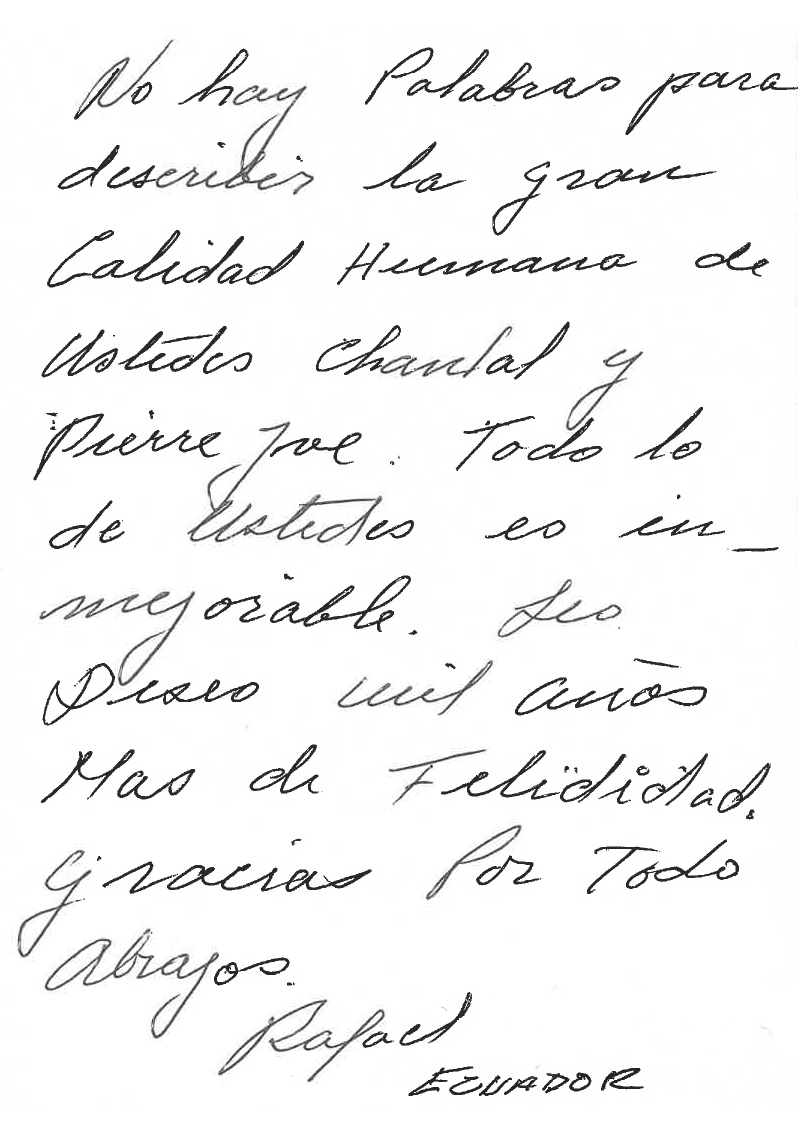 No hay Palabras para
describir la gran
Calidad Humana de
Ustedes Chantal y
Pierre Joe. Todo lo
de Ustedes es in_
mejorable. Les
Deseo mil años
Mas de Felicidad.
Gracias Por Todo
Abrazos.
Rafael
ECUADOR